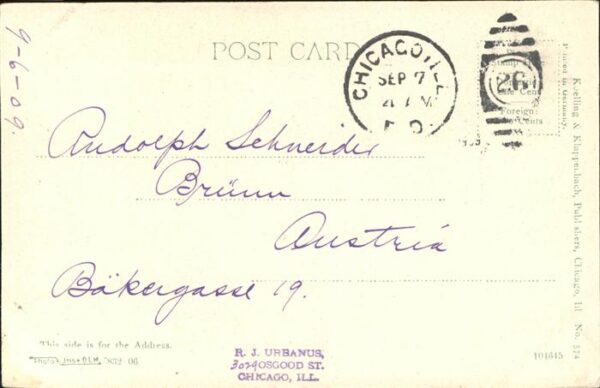 9-6-09
POST CARD
CHICAGO, ILL.
SEP 7
26
Foreign:
Printed in Germany.
Koelling & Klappenbach, Publishers, Chicago, Ill No. 574
Rudolph Schneider
Brünn
Austria
Bäkergasse 19.
This side is for the Address.
R. J. URBANUS,
3029 OSGOOD ST.
CHICAGO, ILL.
101645